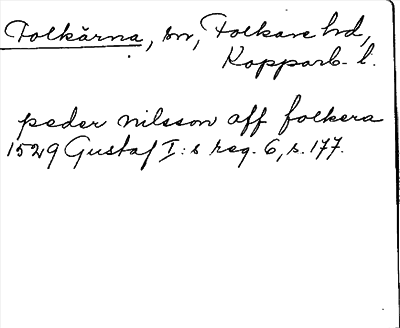 Folkärna, sn, Folkare hd,
Kopparb. l.
peder nilsson aff folkera
1529 Gustaf I:s reg. 6, s. 177.